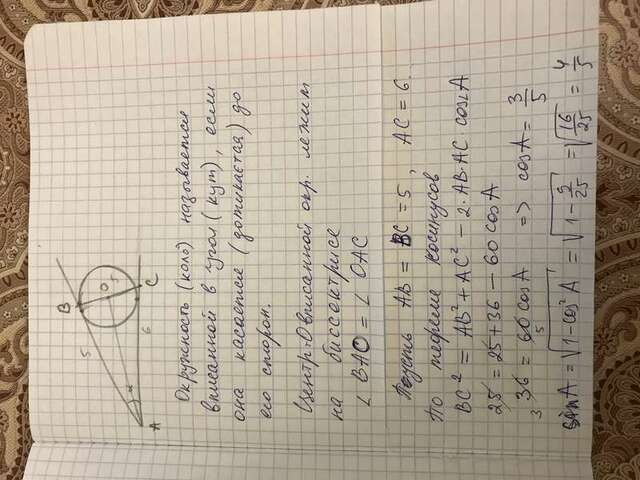 B
5
O
5
C
α
6
A
Окружность (коло) называется
вписанной в угол (кут), если
она касается (дотикается) до
его сторон.
Центр O вписанной окр. лежит
на биссектрисе
∠BAO = ∠OAC
Пусть AB = BC = 5, AC = 6.
По теореме косинусов
BC² = AB² + AC² − 2·AB·AC cosA
25 = 25 + 36 − 60 cosA
36 = 60 cosA => cosA = 3/5
3 5
sinA = √(1−cos²A) = √(1 − 9/25) = √(16/25) = 4/5